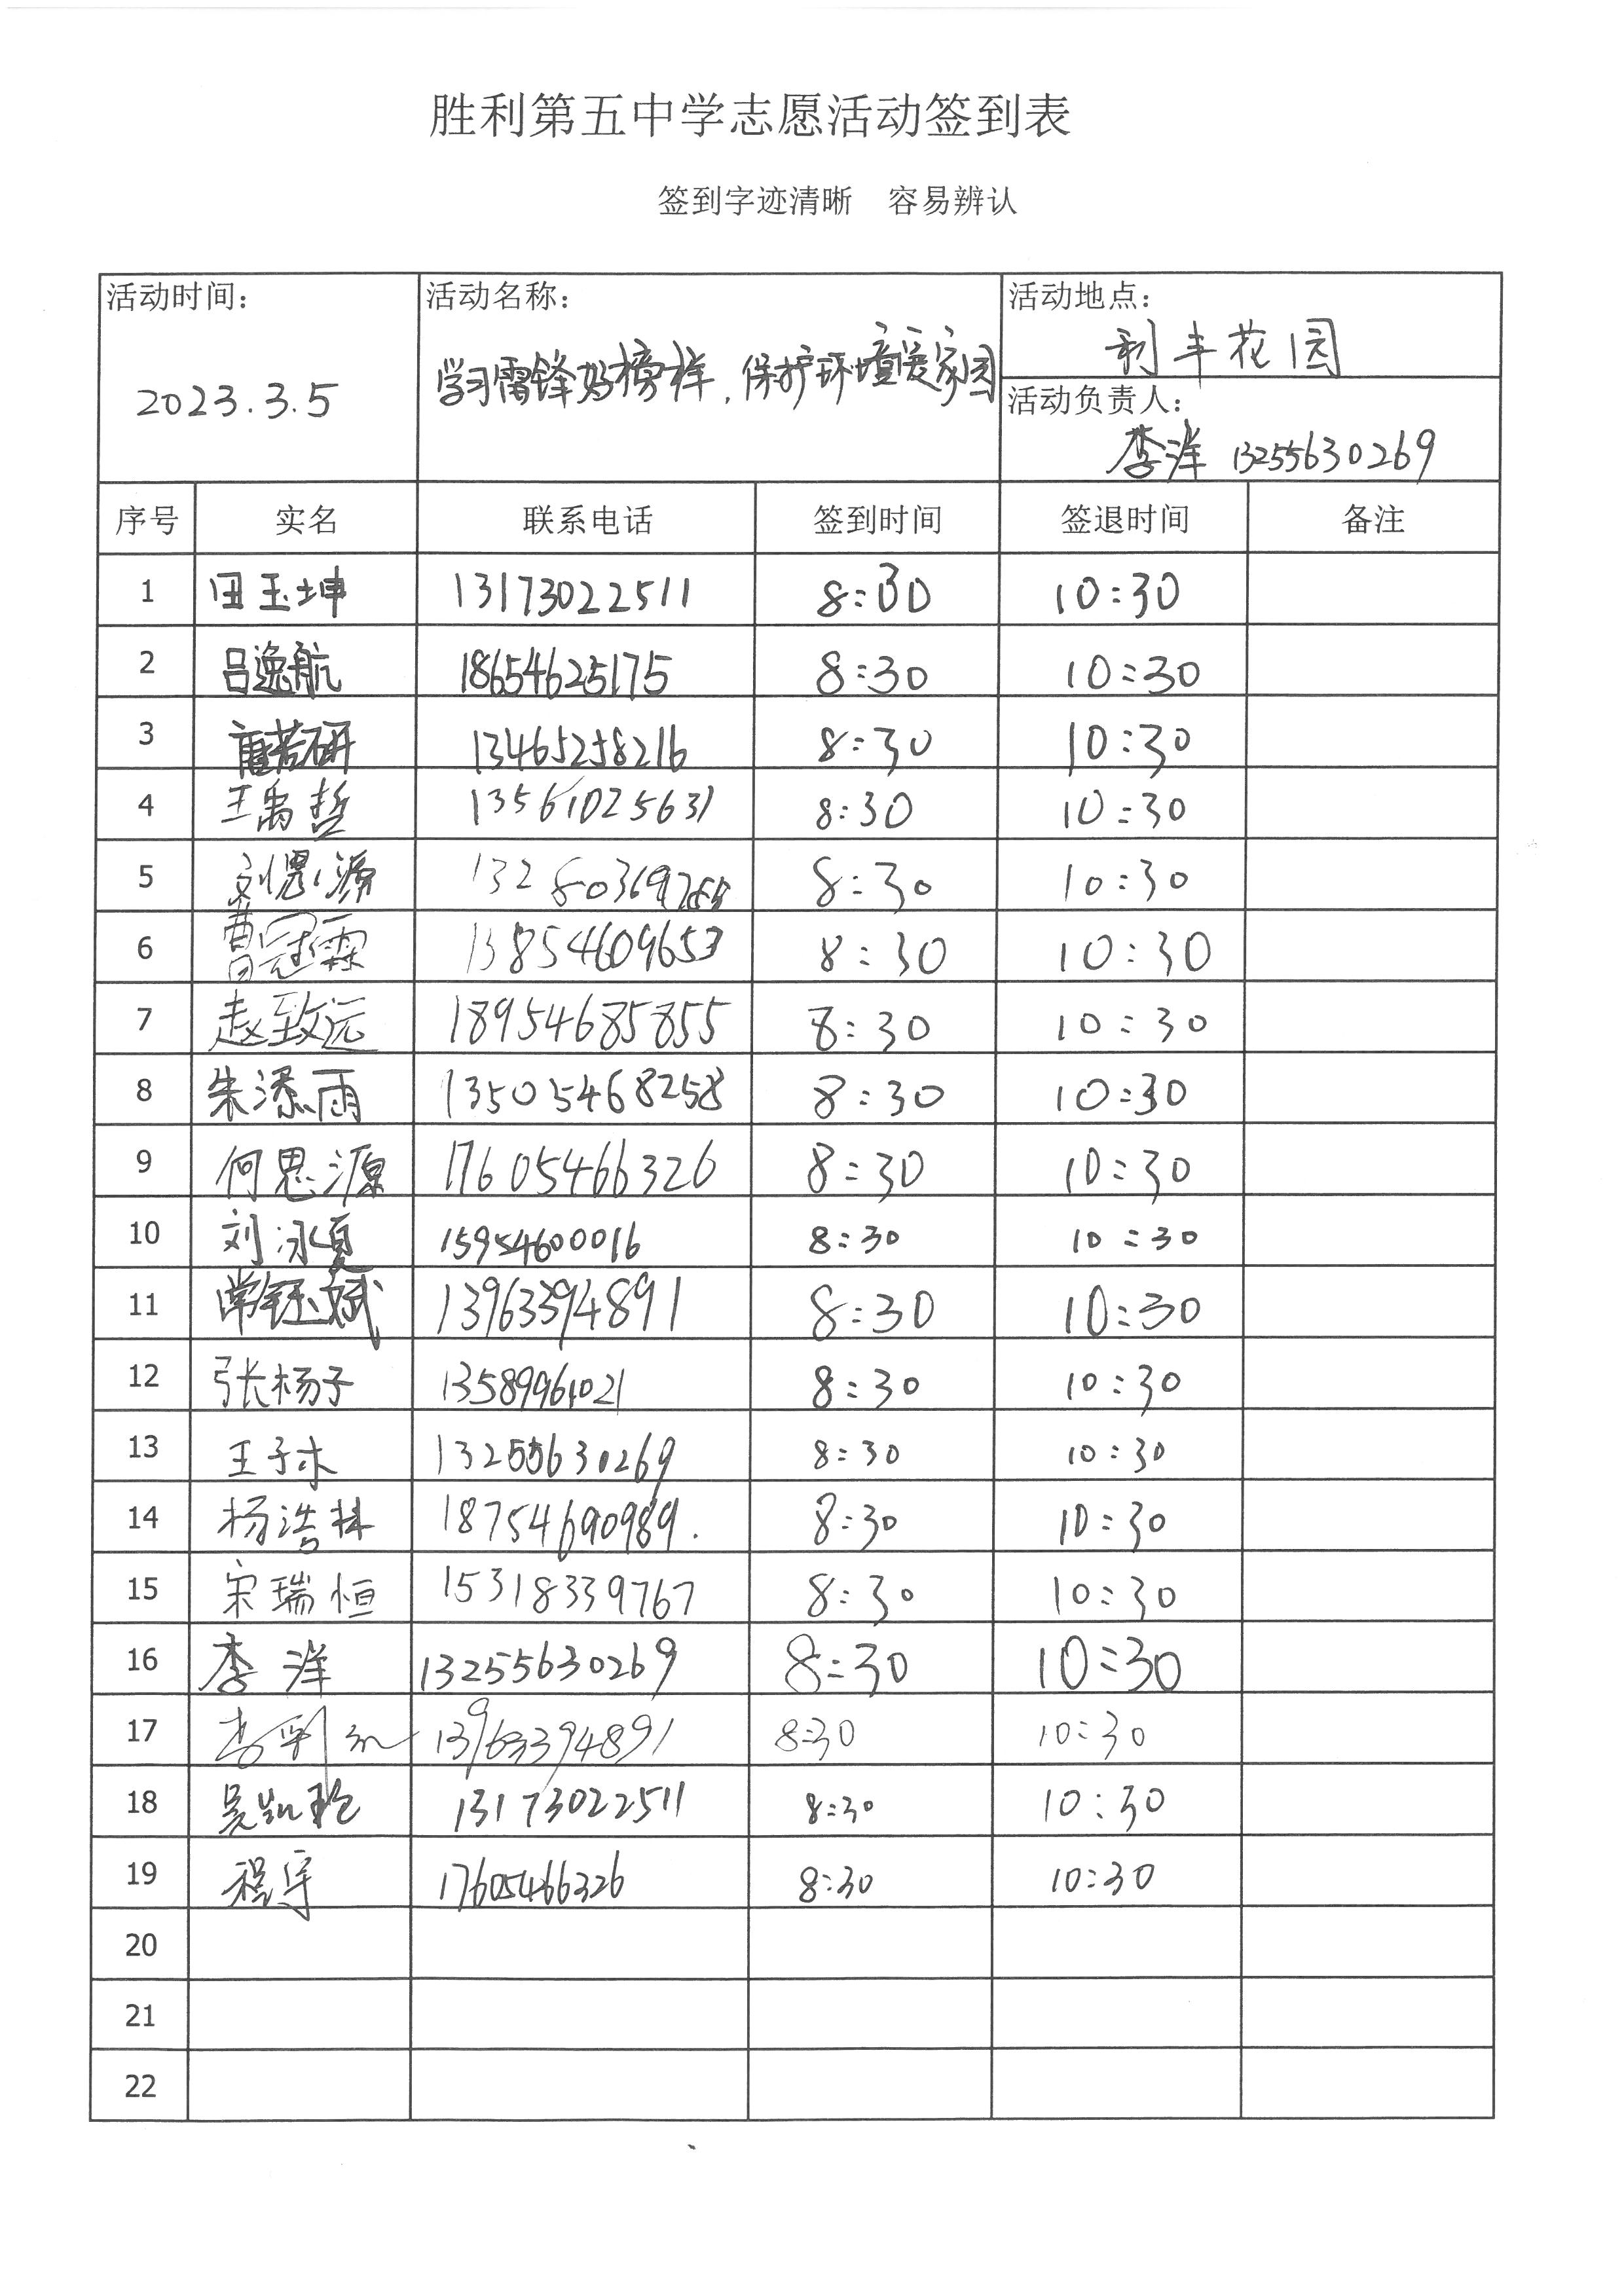 胜利第五中学志愿活动签到表
签到字迹清晰 容易辨认
活动时间: 活动名称: 活动地点:
利丰花园
2023.3.5 学习雷锋好榜样,保护环境爱家园
活动负责人:
李洋 13255630269
序号 实名 联系电话 签到时间 签退时间 备注
1 田玉坤 13173022511 8:30 10:30
2 吕逸航 18654625175 8:30 10:30
3 唐若研 13465258216 8:30 10:30
4 王禹哲 13561025631 8:30 10:30
5 刘恩源 8:30 10:30
6 曹冠霖 13854609653 8:30 10:30
7 赵致远 18954685855 8:30 10:30
8 朱添雨 13505468258 8:30 10:30
9 何思源 17605466326 8:30 10:30
10 刘泳夏 15954600016 8:30 10:30
11 常钰斌 13963394891 8:30 10:30
12 张杨子 13589961021 8:30 10:30
13 王子木 13255630269 8:30 10:30
14 杨浩林 18754690989. 8:30 10:30
15 宋瑞恒 15318339767 8:30 10:30
16 李洋 13255630269 8:30 10:30
17 13963394891 8:30 10:30
18 13173022511 8:30 10:30
19 程宇 17605466326 8:30 10:30
20
21
22